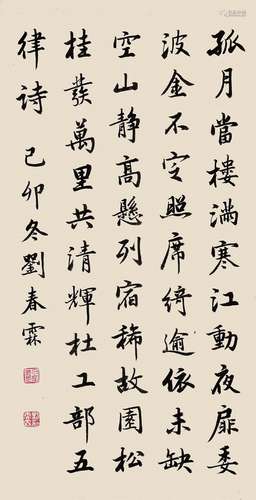 孤月當樓滿寒江動夜扉委
波金不定照席綺逾依未缺
空山靜高懸列宿稀故園松
桂發萬里共清輝杜工部五
律詩 己卯冬劉春霖